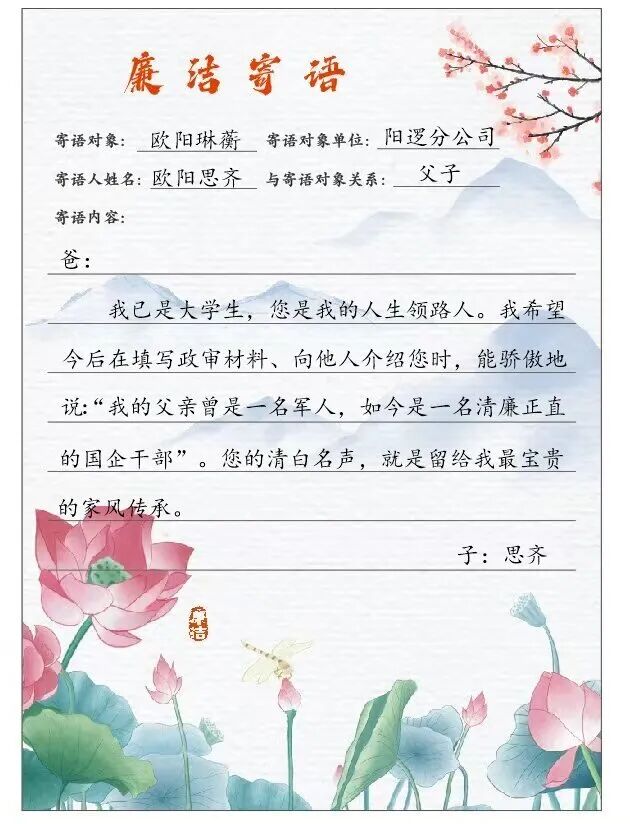 廉洁寄语
寄语对象：欧阳琳蘅 寄语对象单位：阳逻分公司
寄语人姓名：欧阳思齐 与寄语对象关系：父子
寄语内容：
爸：
我已是大学生，您是我的人生领路人。我希望
今后在填写政审材料、向他人介绍您时，能骄傲地
说：“我的父亲曾是一名军人，如今是一名清廉正直
的国企干部”。您的清白名声，就是留给我最宝贵
的家风传承。
子：思齐
廉洁